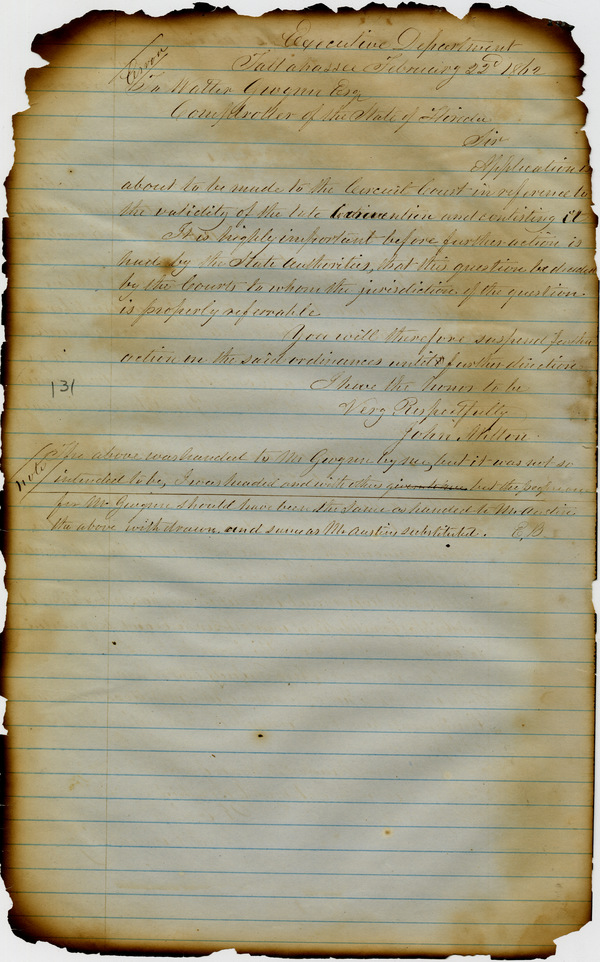 Executive Department
Error
Tallahassee February 22d 1862
To Walter Gwynn Esq
Comptroller of the State of Florida
Sir
Application is
about to be made to the Circuit Court in reference to
the validity of the late Convention and contesting it
It is highly important before further action is
had by the State Authorities, that this question be decided
by the Courts to whom the jurisdiction of the question
is properly referable
You will therefore suspend further
action on the said ordinances until further direction
I have the honor to be
Very Respectfully
John Milton
131
note
The above was handed to Mr Gwynn by me, but it was not so
intended to be, I was headed and with others given to me but the paper
for Mr Gwynn should have been the same as handed to Mr Austin
the above withdrawn and same as Mr Austins substituted. C, B